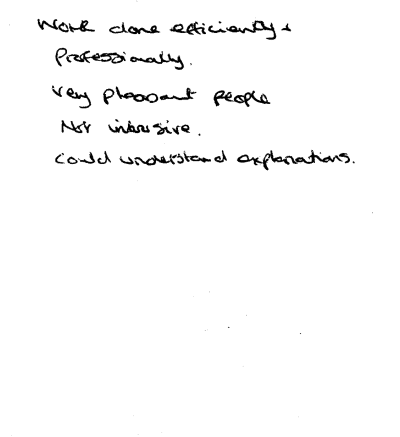 Work done efficiently +
Professionally.
Very pleasant people
Not intrusive.
Could understand explanations.